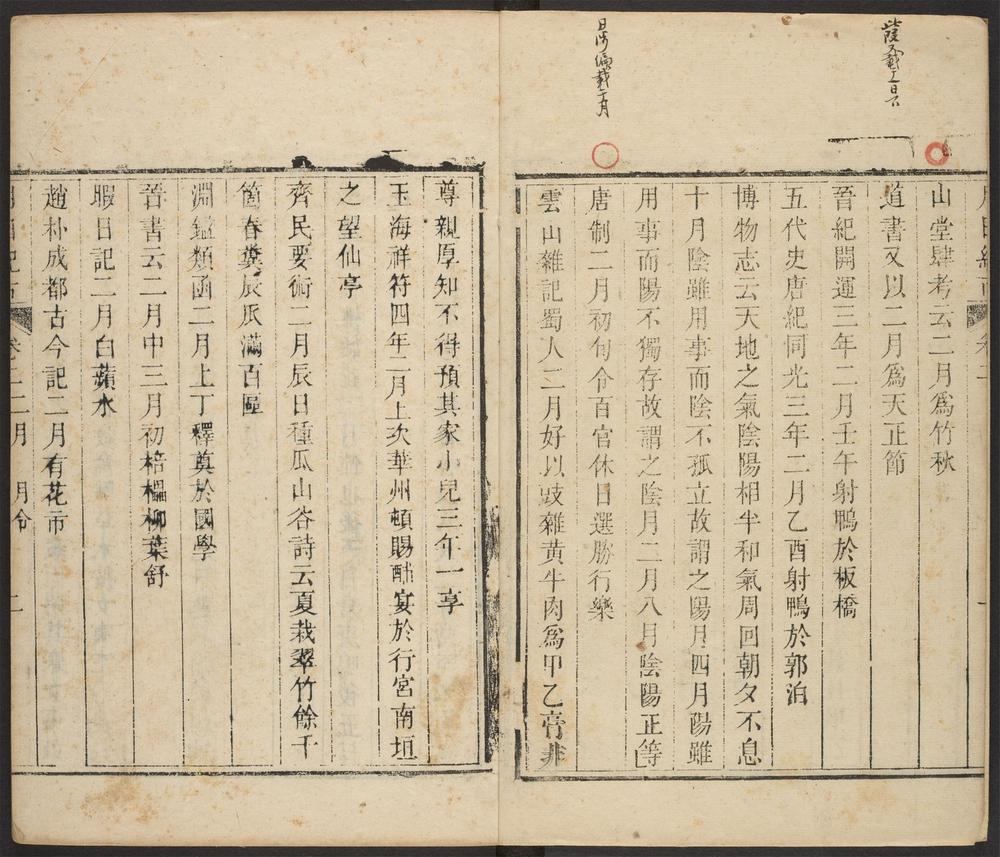 月日紀古 卷二 一
山堂肆考云二月爲竹秋
道書又以二月爲天正節
晉紀開運三年二月壬午射鴨於板橋
五代史唐紀同光三年二月乙酉射鴨於郭泊
博物志云天地之氣陰陽相半和氣周回朝夕不息
十月陰雖用事而陰不孤立故謂之陽月四月陽雖
用事而陽不獨存故謂之陰月二月八月陰陽正等
唐制二月初旬令百官休日選勝行樂
雲山雜記蜀人二月好以豉雜黄牛肉爲甲乙膏非
尊親厚知不得預其家小兒三年一享
玉海祥符四年二月上次華州頓賜酺宴於行宮南垣
之望仙亭
齊民要術二月辰日種瓜山谷詩云夏栽翠竹餘千
箇春糞辰瓜滿百區
淵鑑類函二月上丁釋奠於國學
晉書云二月中三月初梧櫑柳葉舒
暇日記二月白蘋水
趙朴成都古今記二月有花市
月日紀古 卷二 二月 月令 二